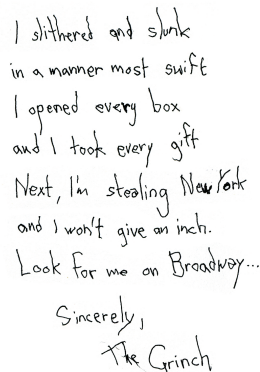 I slithered and slunk
in a manner most swift
I opened every box
and I took every gift
Next, I'm stealing New York
and I won't give an inch.
Look for me on Broadway...
Sincerely,
The Grinch